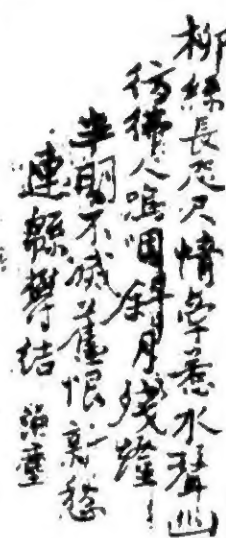 柳絲長咫尺情牽惹水聲幽
彷彿人嗚咽斜月殘燈
半明不滅舊恨新愁
連緜鬱結